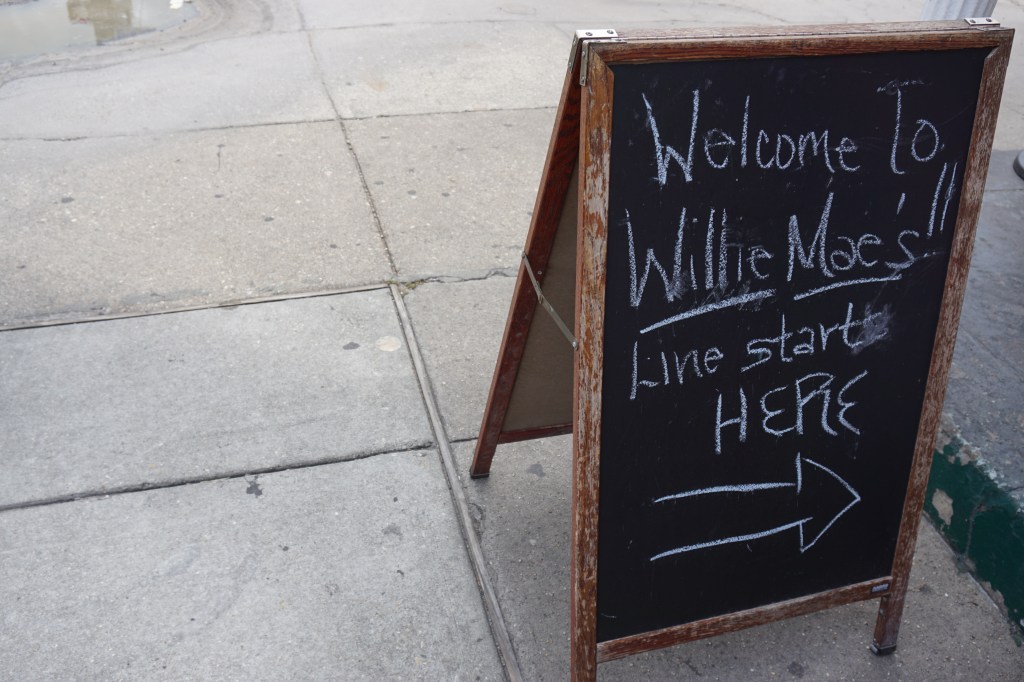 Welcome To
Willie Mae's!!
Line start
HERE